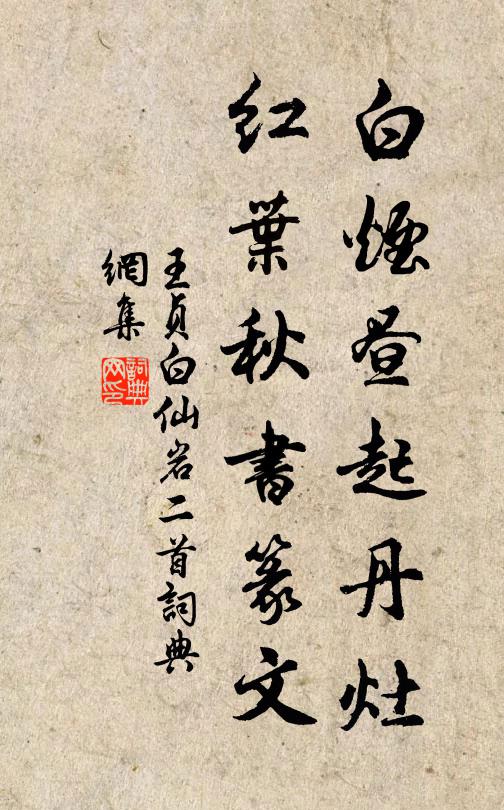 白煙昼起丹灶
紅葉秋書篆文
王貞白仙岩二首詞典
網集
詞典
网印